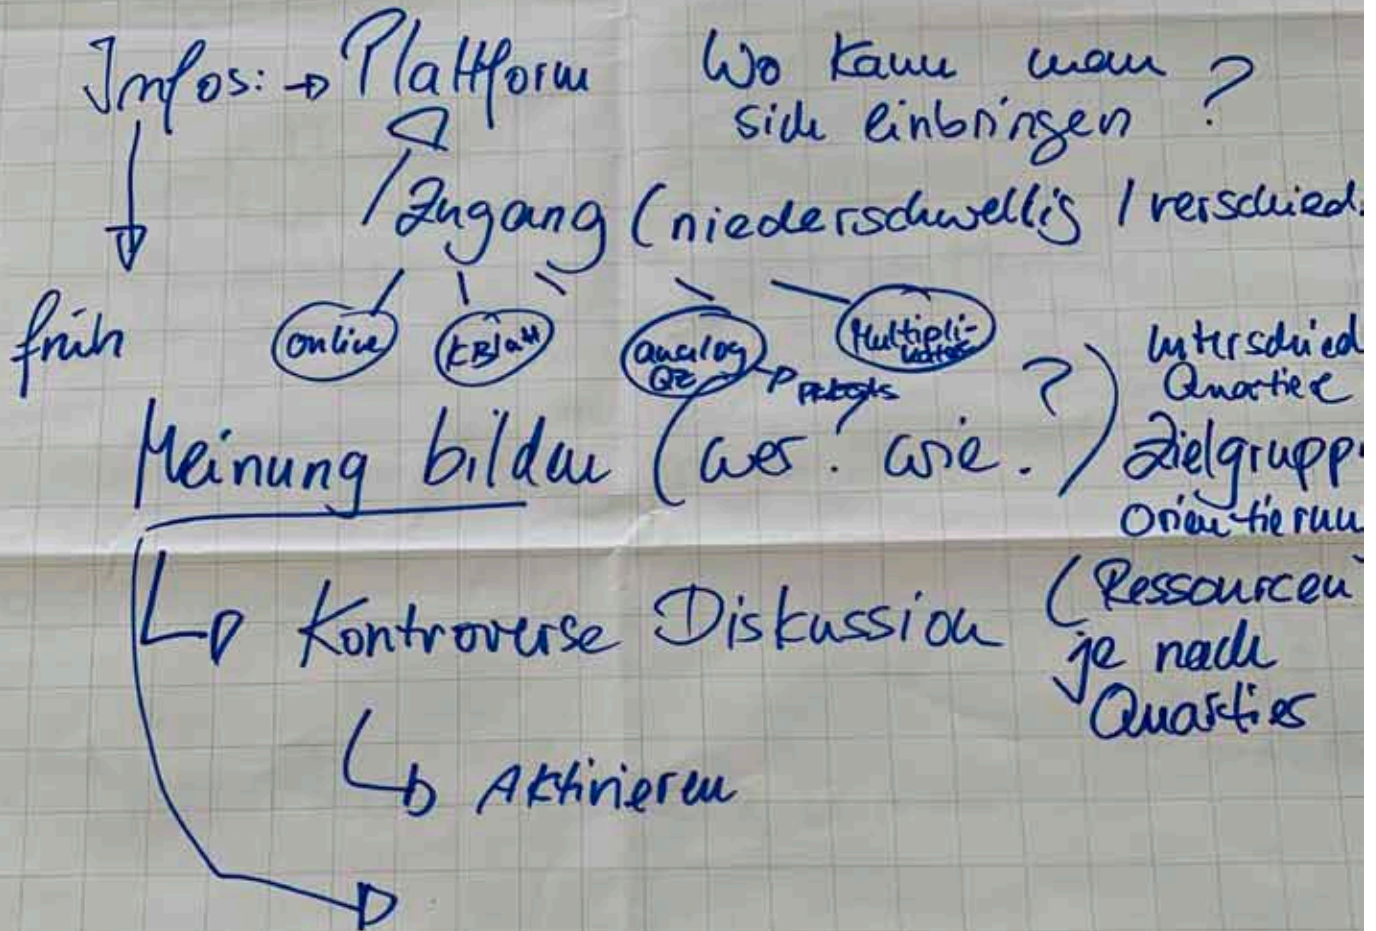 Infos: → Plattform
Wo kann man
sich einbringen ?
Zugang (niederschwellig / verschied.
früh
online
KBlatt
analog
QZ
Multipli-
Unterschied
Quartier
Meinung bilden (wer? wie?)
Zielgrupp
Orientierun
Kontroverse Diskussion
(Ressourcen
je nach
Quartier
Aktivieren